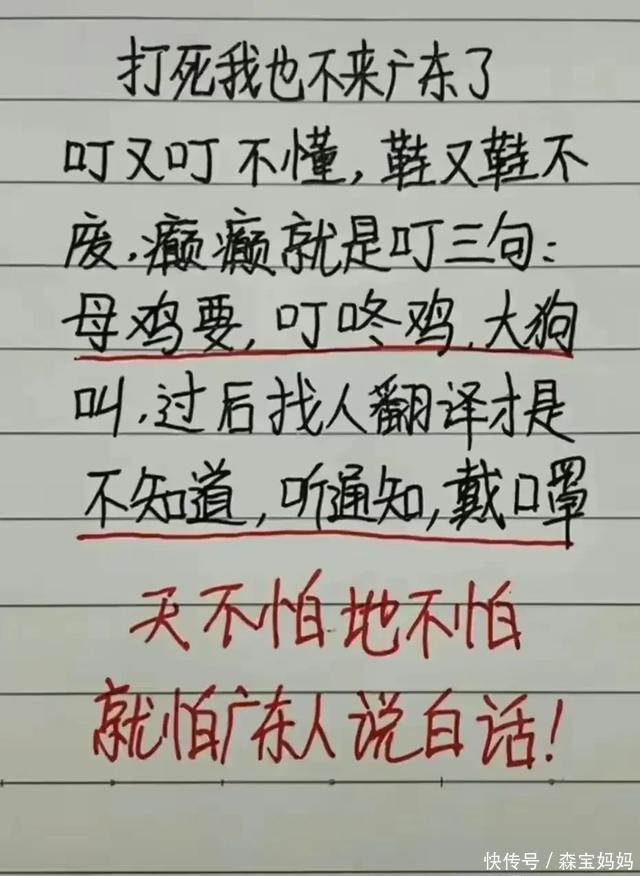 打死我也不来广东了
叮又叮不懂,鞋又鞋不
废,癫癫就是叮三句:
母鸡要,叮咚鸡,大狗
叫,过后找人翻译才是
不知道,听通知,戴口罩
天不怕地不怕
就怕广东人说白话!
快传号/森宝妈妈